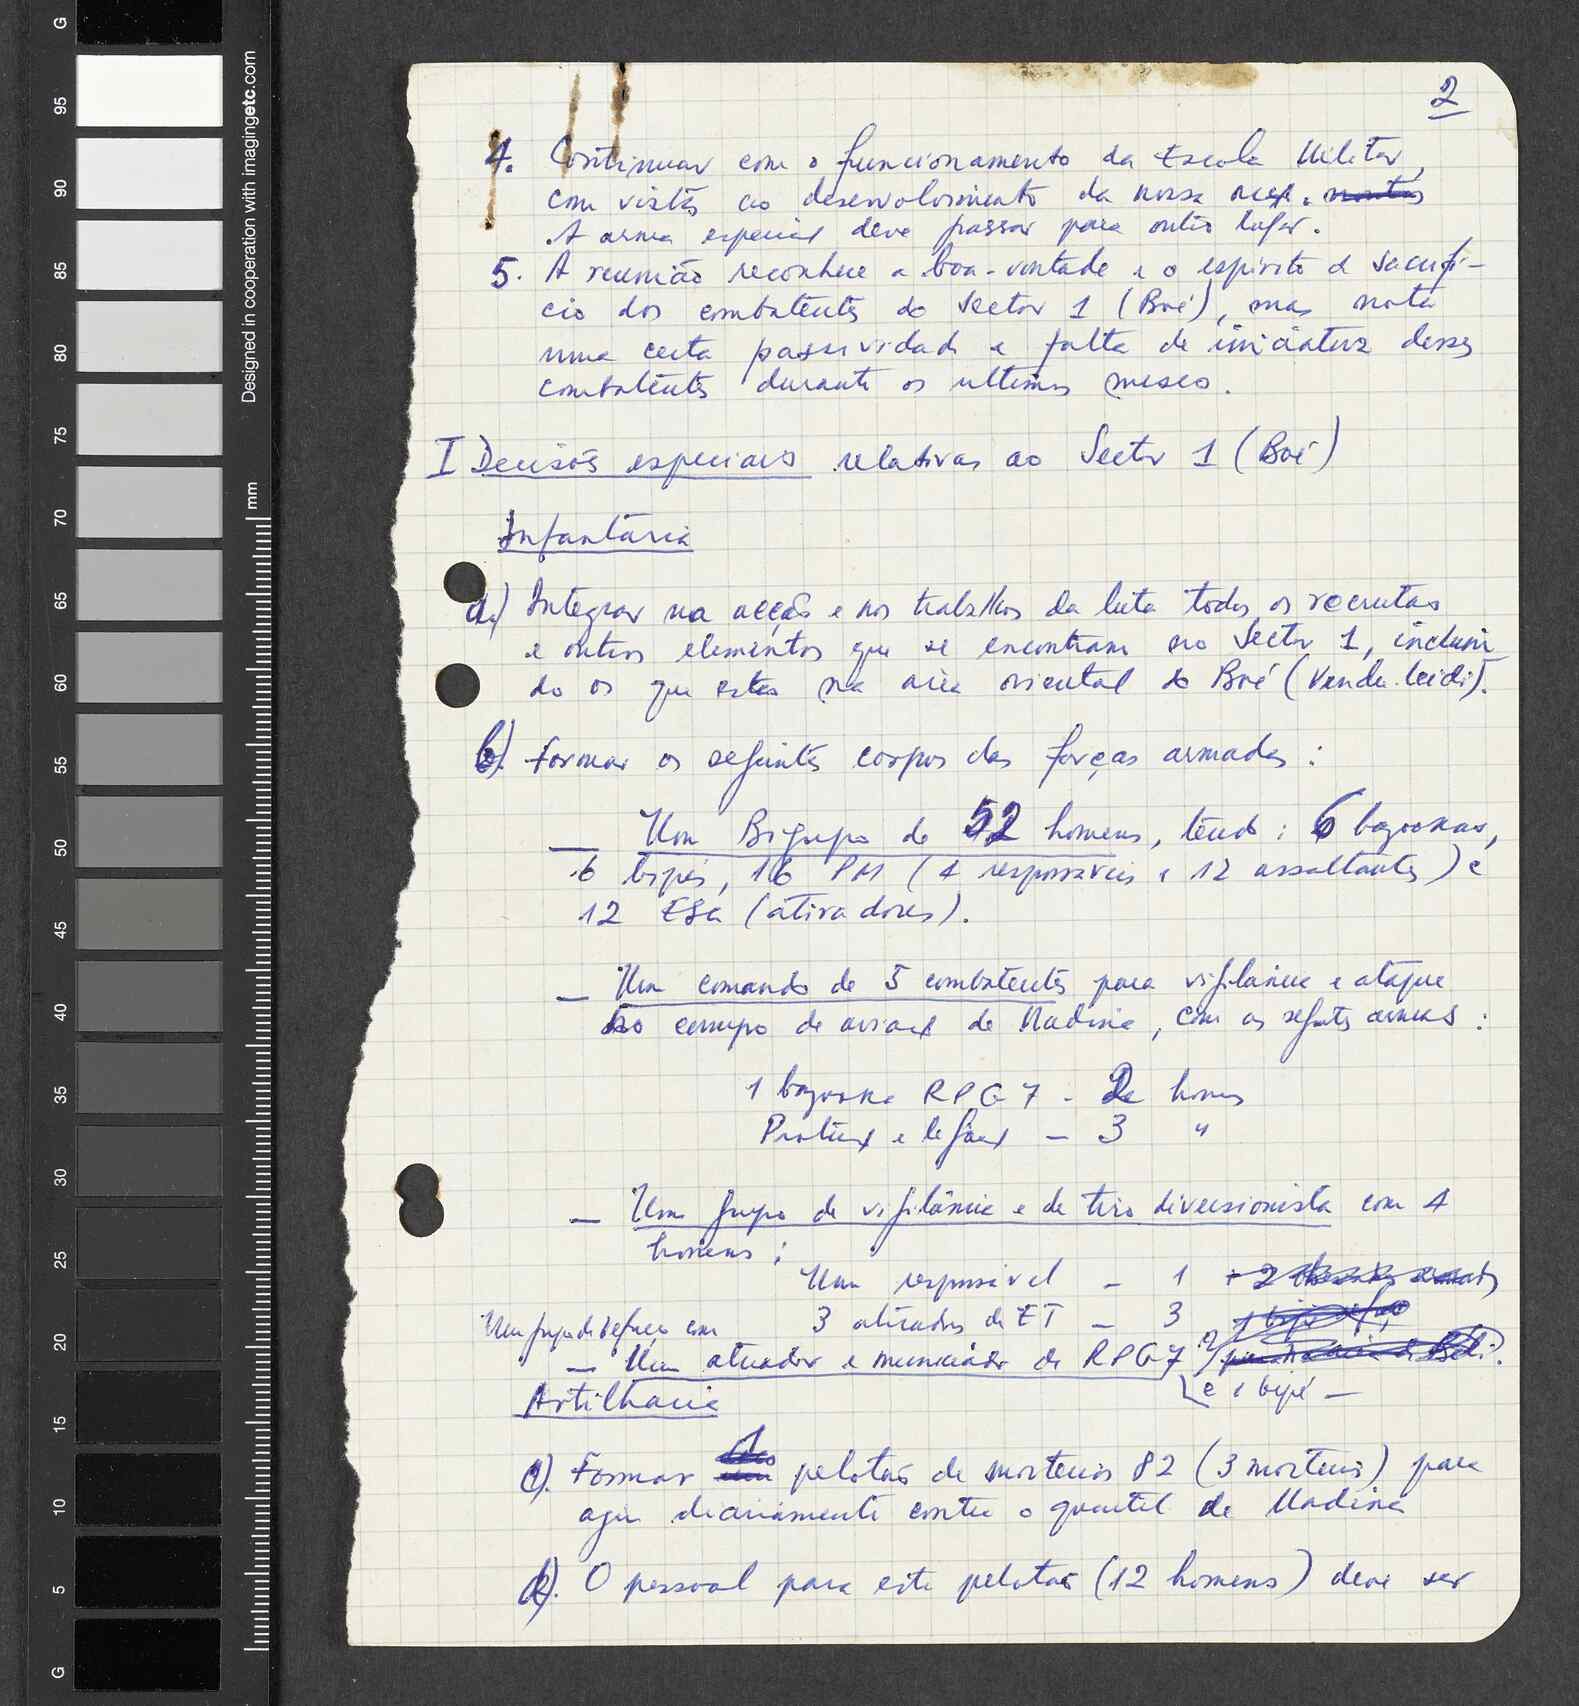 Designed in cooperation with imagingetc.com
mm
G
95
90
85
80
75
70
65
60
55
50
45
40
35
30
25
20
15
10
5
G
2
4. Continuar com o funcionamento da Escola Militar,
com vistas ao desenvolvimento da nossa acção.
A arma especial deve passar para outro lugar.
5. A reunião reconhece a boa-vontade e o espirito de sacrifi-
cio dos combatentes do Sector 1 (Boé), mas nota
uma certa passividade e falta de iniciativa desses
combatentes durante os ultimos meses.
I Decisões especiais relativas ao Sector 1 (Boé)
Infantaria
a.) Integrar na acção e nos trabalhos da luta todos os recrutas
e outros elementos que se encontram no Sector 1, incluin
do os que estão na área oriental do Boé (Vendu-leidi).
b). Formar os seguintes corpos das forças armadas:
— Um Bigrupo de 52 homens, tendo: 6 bazookas,
6 bipés, 16 PM (4 responsáveis e 12 assaltantes) e
12 ESA (atiradores).
— Um comando de 5 combatentes para vigilância e ataque
ao campo de aviação de Madina, com as seguintes armas:
1 bazooka RPG 7 - 2 homens
Protecção e ligação — 3 "
— Um grupo de vigilância e de tiro diversionista com 4
homens:
Um responsável — 1
3 atiradores de ET — 3
Um grupo de reforço com
— Um atirador e municiador de RPG7
e 1 bipé —
Artilharia
c). Formar 1 pelotão de morteiros 82 (3 morteiros) para
agir diariamente contra o quartel de Madina
d). O pessoal para este pelotão (12 homens) deve ser